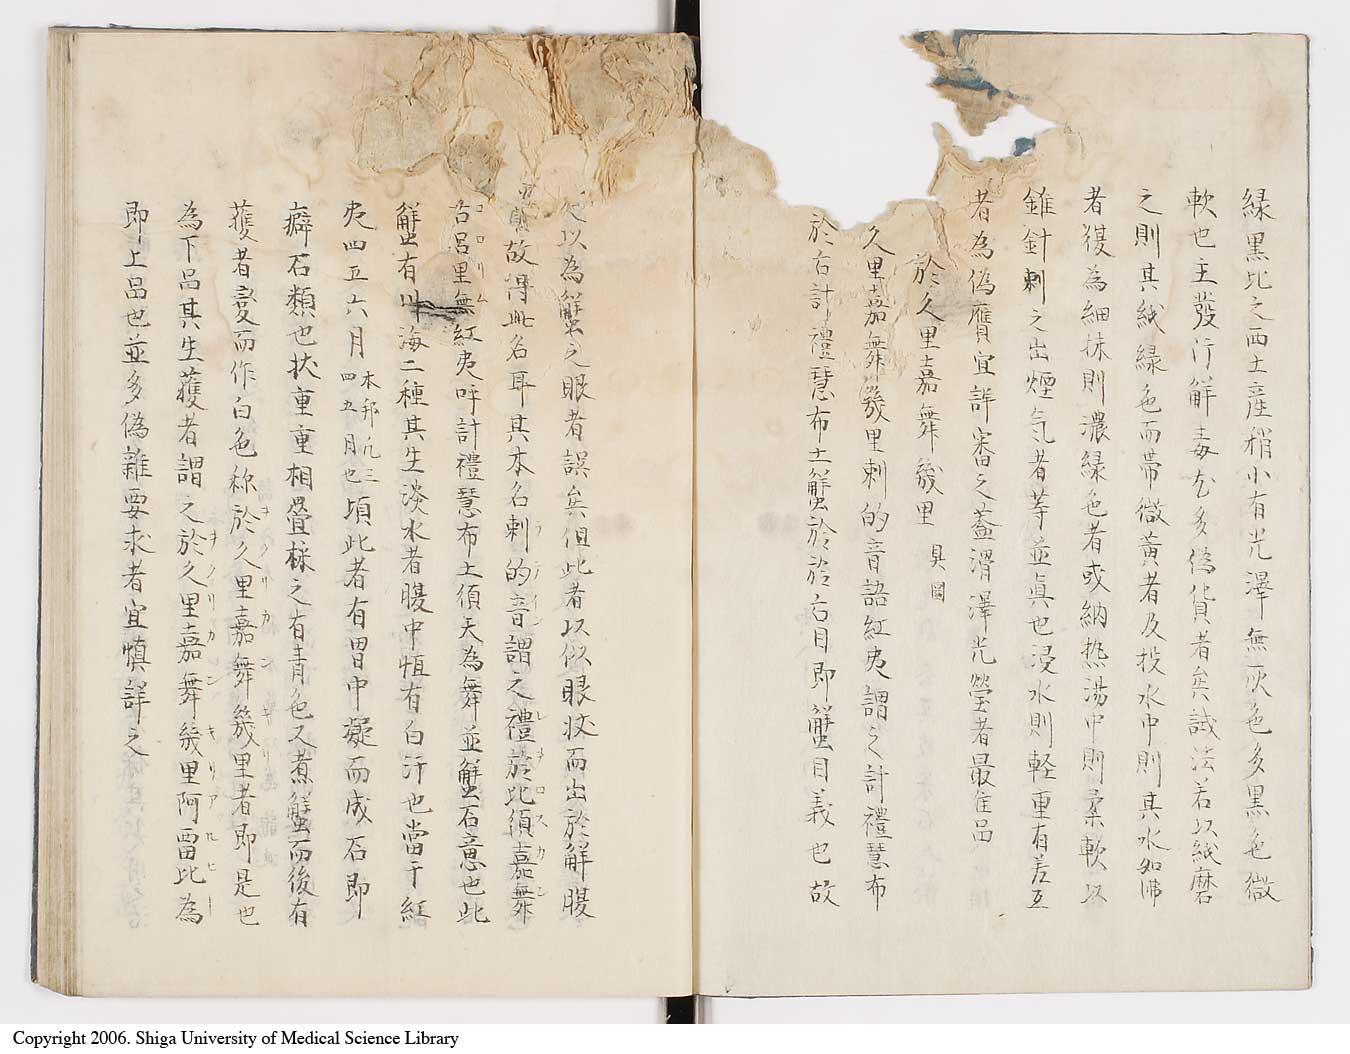 緑黒比之西土産稍小有光澤無灰色多黒色微
軟也主發汗解毒尤多偽貨者矣試法若以紙磨
之則其紙緑色而帯微黄者及投水中則其水如沸
者復為細抹則濃緑色者或納热湯中則柔軟以
錐針刺之出煙气者䓁並眞也浸水則軽重有差互
者為偽贋宜詳審之蓋滑澤光瑩者最佳品
於久里嘉舞幾里 具圖
久里嘉舞幾里刺的音語紅夷謂之計禮慧布
於右計禮慧布土蟹於於右目即蟹目義也故
以為蟹之眼者誤矣但此者以似眼状而出於解腹
故得此名耳其本名刺的音謂之禮於比須嘉舞
ラテイン レヲロスカン
古呂里無紅夷呼計禮慧布土須天為舞並蟹石意也此
コロリム
蟹有川海二種其生淡水者腹中恒有白汗也當于紅
夷四五六月本邦凢三四五月也頃此者有胃中凝而成石即
癖石類也扶重重相疊椂之有青色又煮蟹而後有
蒦者变而作白色称於久里嘉舞幾里者即是也
ヲクリカンキリ
為下品其生蒦者謂之於久里嘉舞幾里阿留比為
ヲクリカンキリアルビー
即上品也並多偽雜要求者宜慎詳之